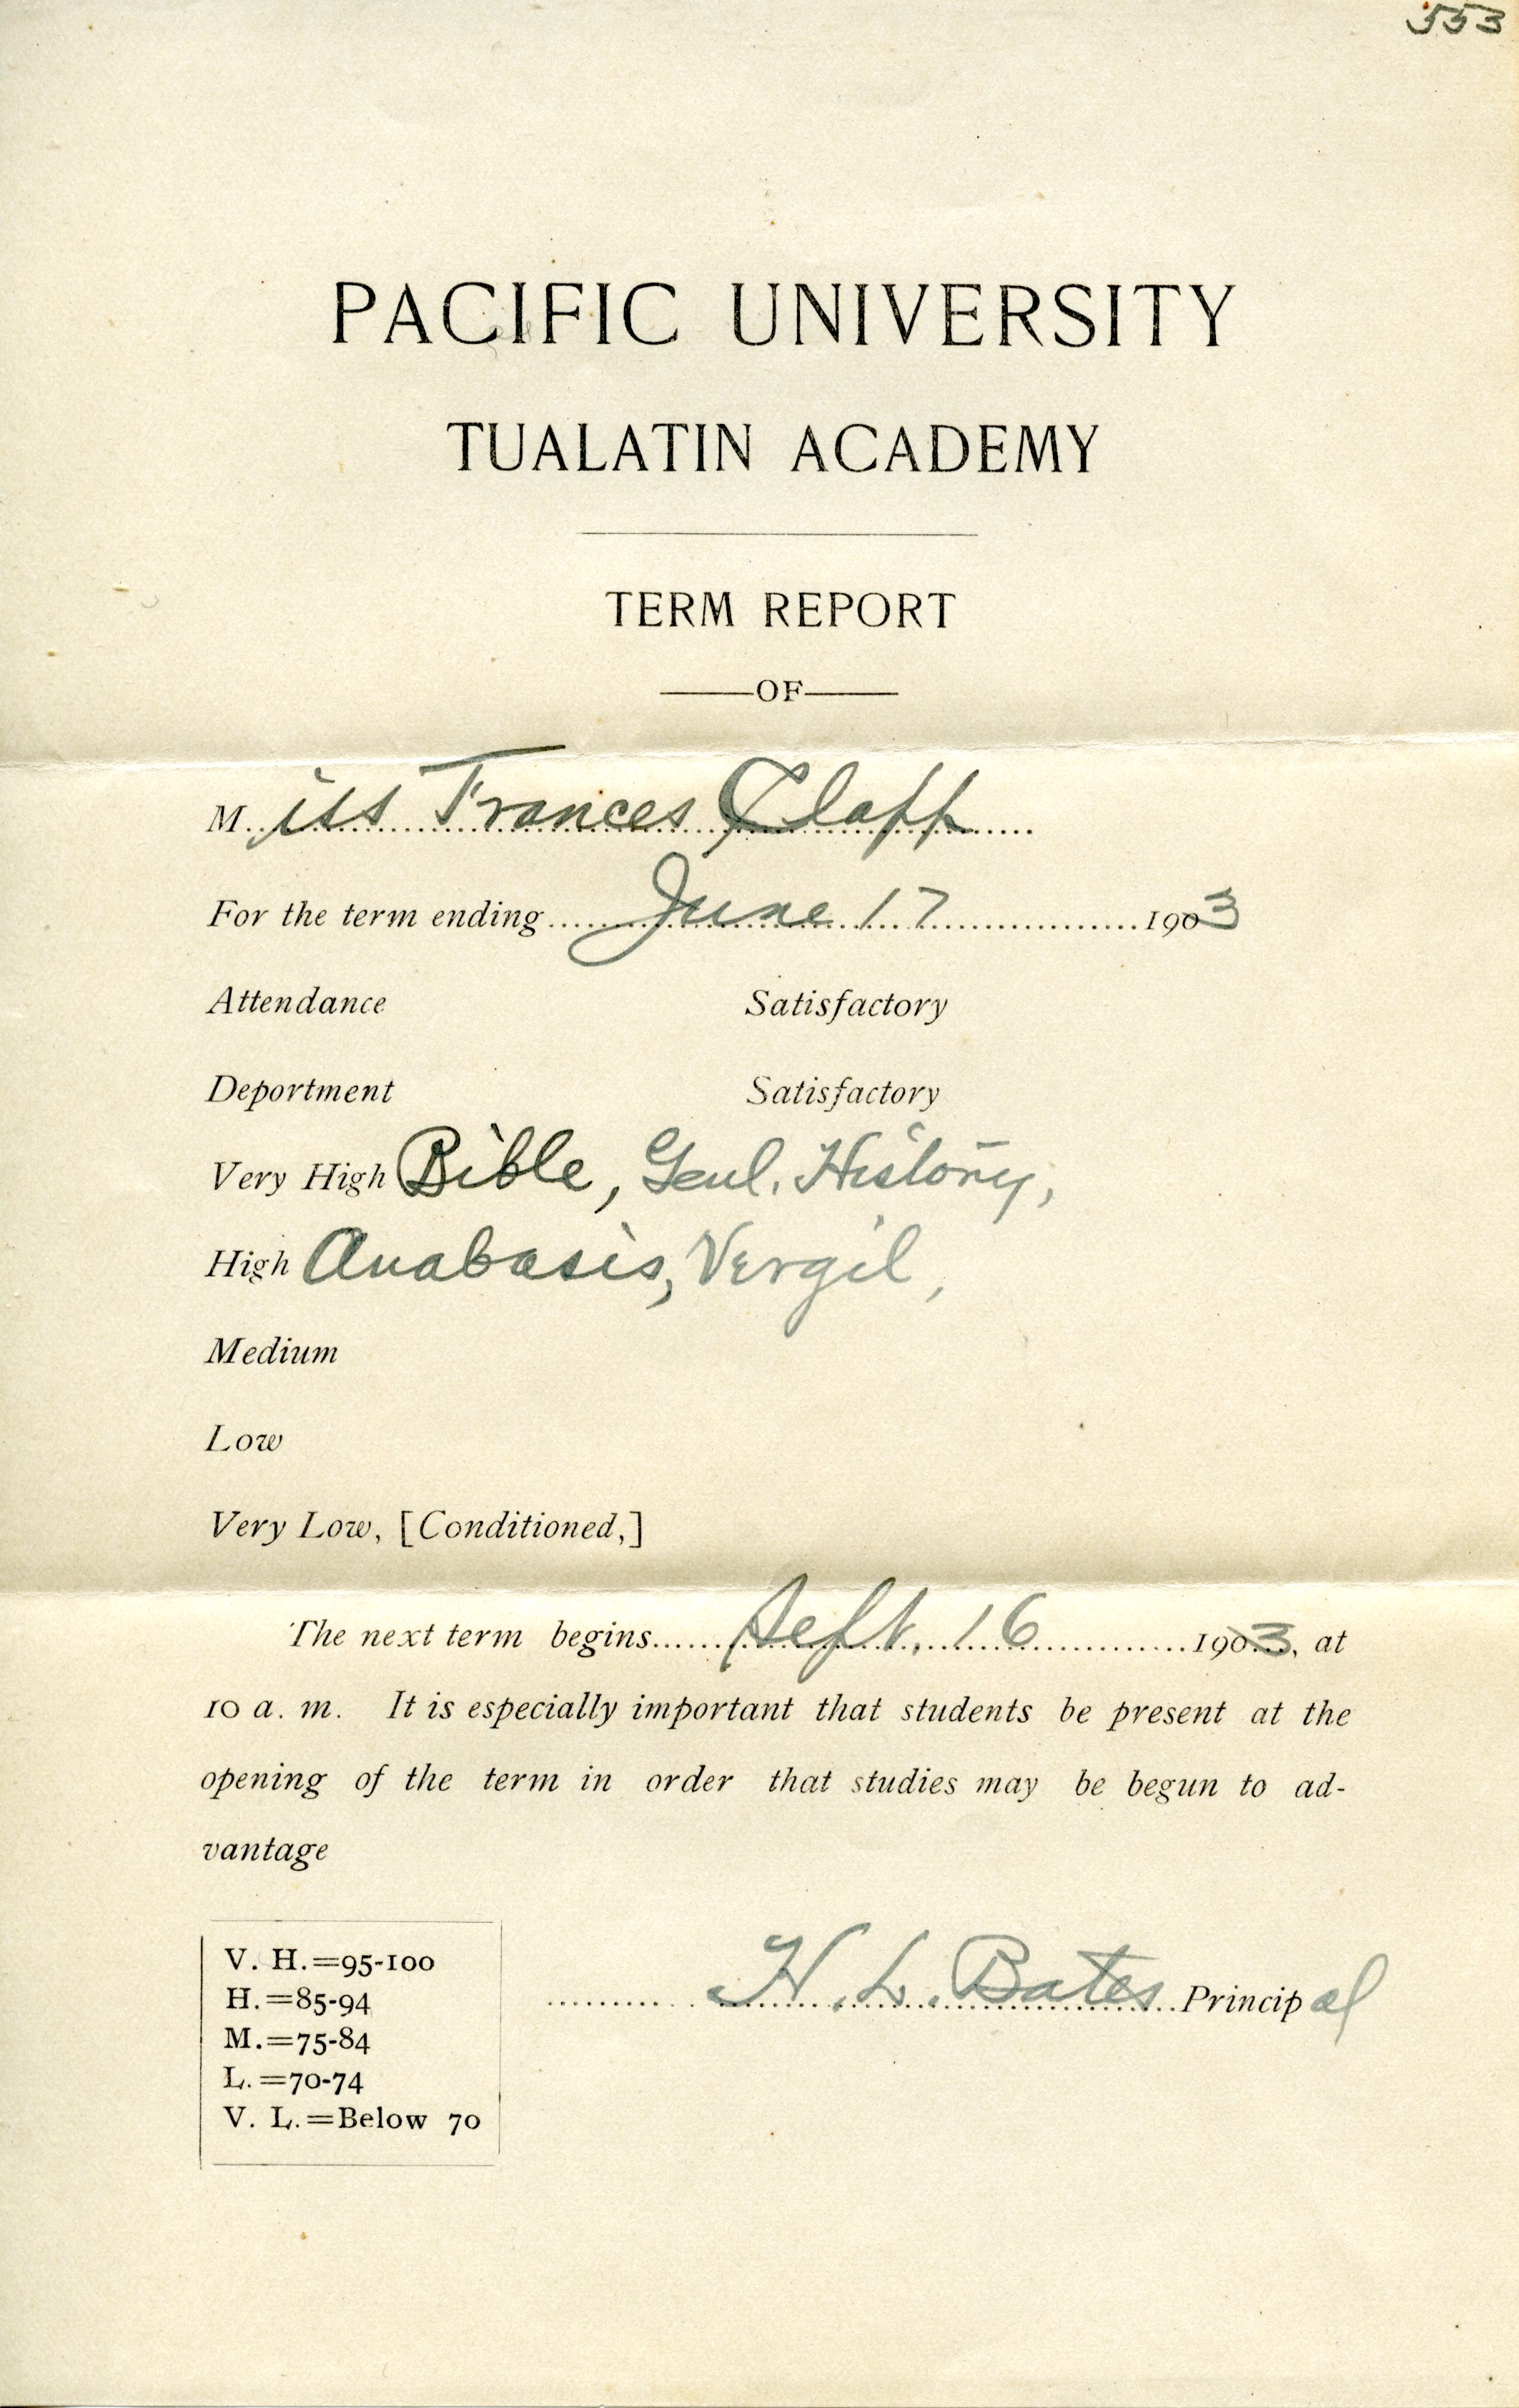 553
PACIFIC UNIVERSITY
TUALATIN ACADEMY
TERM REPORT
OF
Miss Frances Clapp
For the term ending June 17 1903
Attendance Satisfactory
Deportment Satisfactory
Very High Bible, Genl. History,
High Anabasis, Vergil,
Medium
Low
Very Low, [Conditioned,]
The next term begins Sept. 16 1903, at
10 a. m. It is especially important that students be present at the
opening of the term in order that studies may be begun to ad-
vantage
V. H.=95-100
H.=85-94
M.=75-84
L.=70-74
V. L.=Below 70
H. L. Bates Principal